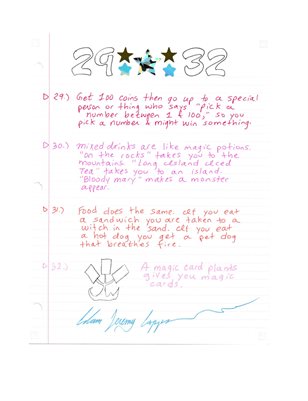 29 32
29.) Get 100 coins then go up to a special
person or thing who says "pick a
number between 1 & 100," so you
pick a number & might win something.
30.) Mixed drinks are like magic potions.
"on the rocks" takes you to the
mountains "Long Island Iced
Tea" takes you to an island.
"Bloody mary" makes a monster
appear.
31.) Food does the same. If you eat
a sandwich you are taken to a
witch in the sand. If you eat
a hot dog you get a pet dog
that breathes fire.
32.) A magic card plants
gives you magic
cards.
Jeremy